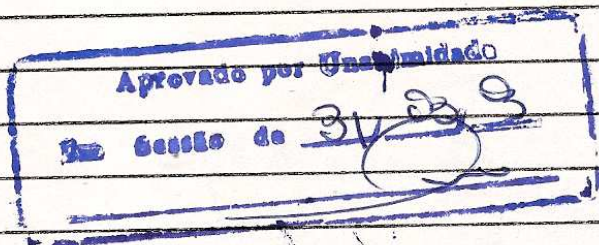 Aprovado por Unanimidade
Em Sessão de